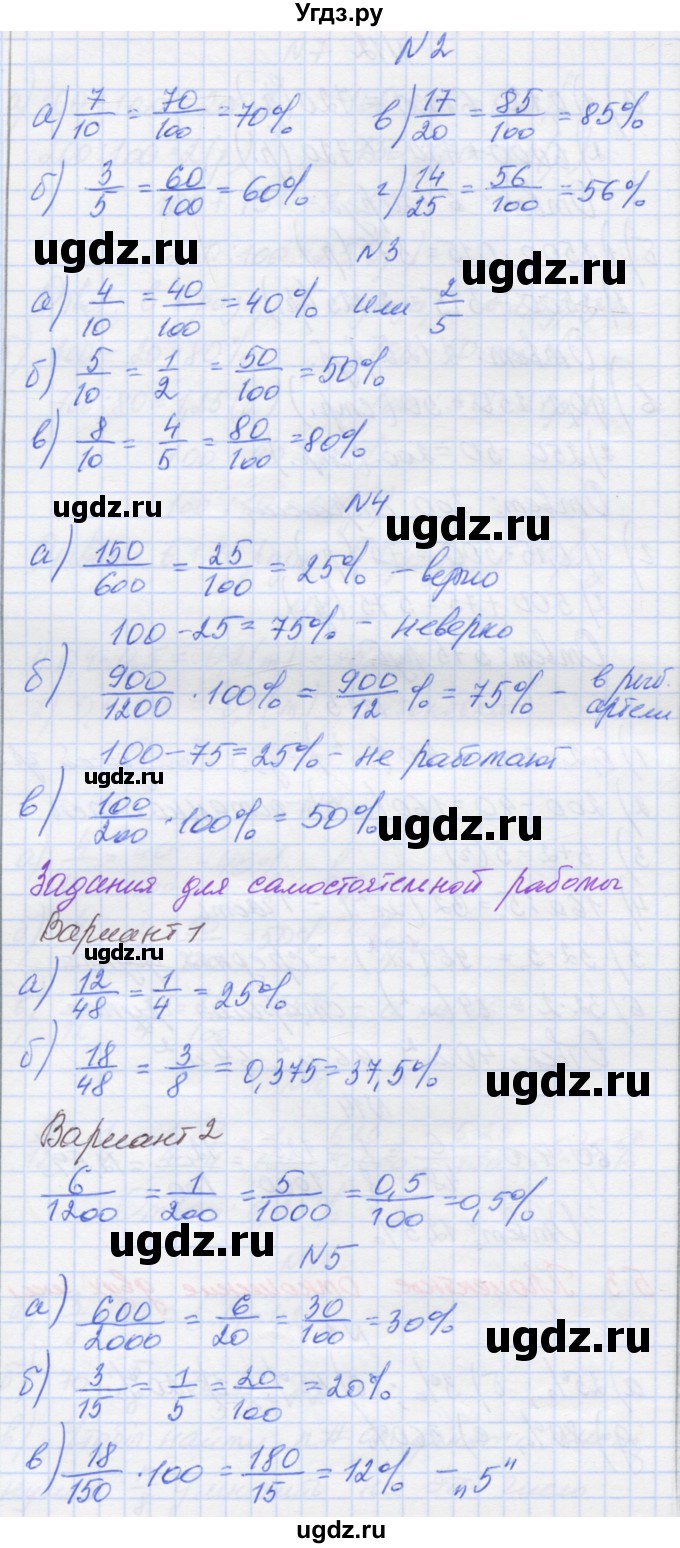 Угдз.ру
N2
а) 7/10 = 70/100 = 70% в) 17/20 = 85/100 = 85%
б) 3/5 = 60/100 = 60% г) 14/25 = 56/100 = 56%
ugdz.ru
N3
ugdz.ru
а) 4/10 = 40/100 = 40% или 2/5
б) 5/10 = 1/2 = 50/100 = 50%
в) 8/10 = 4/5 = 80/100 = 80%
ugdz.ru
N4
ugdz.ru
а) 150/600 = 25/100 = 25% – верно
100 – 25 = 75% – неверно
б) 900/1200 · 100% = 900/12 % = 75% – в рыб. артели
100 – 75 = 25% – не работают
ugdz.ru
в) 100/200 · 100% = 50%
ugdz.ru
Задания для самостоятельной работы
Вариант 1
ugdz.ru
а) 12/48 = 1/4 = 25%
б) 18/48 = 3/8 = 0,375 = 37,5%
ugdz.ru
Вариант 2
6/1200 = 1/200 = 5/1000 = 0,5/100 = 0,5%
ugdz.ru
N5
а) 600/2000 = 6/20 = 30/100 = 30%
ugdz.ru
б) 3/15 = 1/5 = 20/100 = 20%
в) 18/150 · 100 = 180/15 = 12% – „5"
ugdz.ru